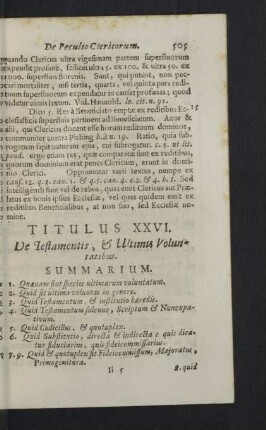 De Peculio Clericorum. 505
quando Clericus ultra vigesimam partem superfluorum
expendit profanè, scilicet ultra 5. ex 100. & ultra 50. ex
1000. superfluis florenis. Sunt, qui putent, non pec-
care mortaliter, nisi tertia, quarta, vel quinta pars reddi-
tuum superfluorum expendatur in causas profanas; quod
videtur nimis laxum. Vid. Haunold. lc. cit. n. 91.
Dico 5. Res à Beneficiato emptæ ex reditibus Ec- 15
clesiasticis superfluis pertinent ad Beneficiatum. Azor &
alii, qui Clericos docent esse horum redituum dominos,
communiter contra Pirhing h. à n. 19. Ratio, quia sub-
rogatum sapit naturam ejus, cui subrogatur.
prod. ergo etiam res, quæ comparatæ sunt ex reditibus,
quorum dominium erat penes Clericum, erunt in domi-
nio Clerici. Opponuntur varii textus, nempe ex
caus. 12. q. 3. can. 1. & q. 5. can. 4. c. 2 & 4. h. t. Sed
intelligendi sunt vel de rebus, quas emit Clericus aut Præ-
latus ex bonis ipsius Ecclesiæ, vel quas quidem emit ex
reditibus Beneficialibus, at non suo, sed Ecclesiæ no-
mine.
TITULUS XXVI.
De Testamentis, & Ultimis Volun-
tatibus.
SUMMARIUM.
1. Quænam sint species ultimarum voluntatum.
2. Quid sit ultima voluntas in genere.
3. Quid Testamentum, & institutio hæredis.
4. Quid Testamentum solenne, Scriptum & Nuncupa-
tivum.
5. Quid Codicillus, & quotuplex.
6. Quid Substitutio, directa & indirecta & quis dica-
tur fiduciarius, quis fideicommissarius.
7. 9. Quid & quotuplex sit Fideicommissum, Majoratus,
Primogenitura.
Ii 5 8. quid